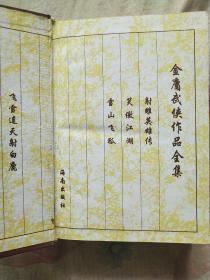 金庸武侠作品全集
射雕英雄传
笑傲江湖
雪山飞狐
海南出版社
飞雪连天射白鹿